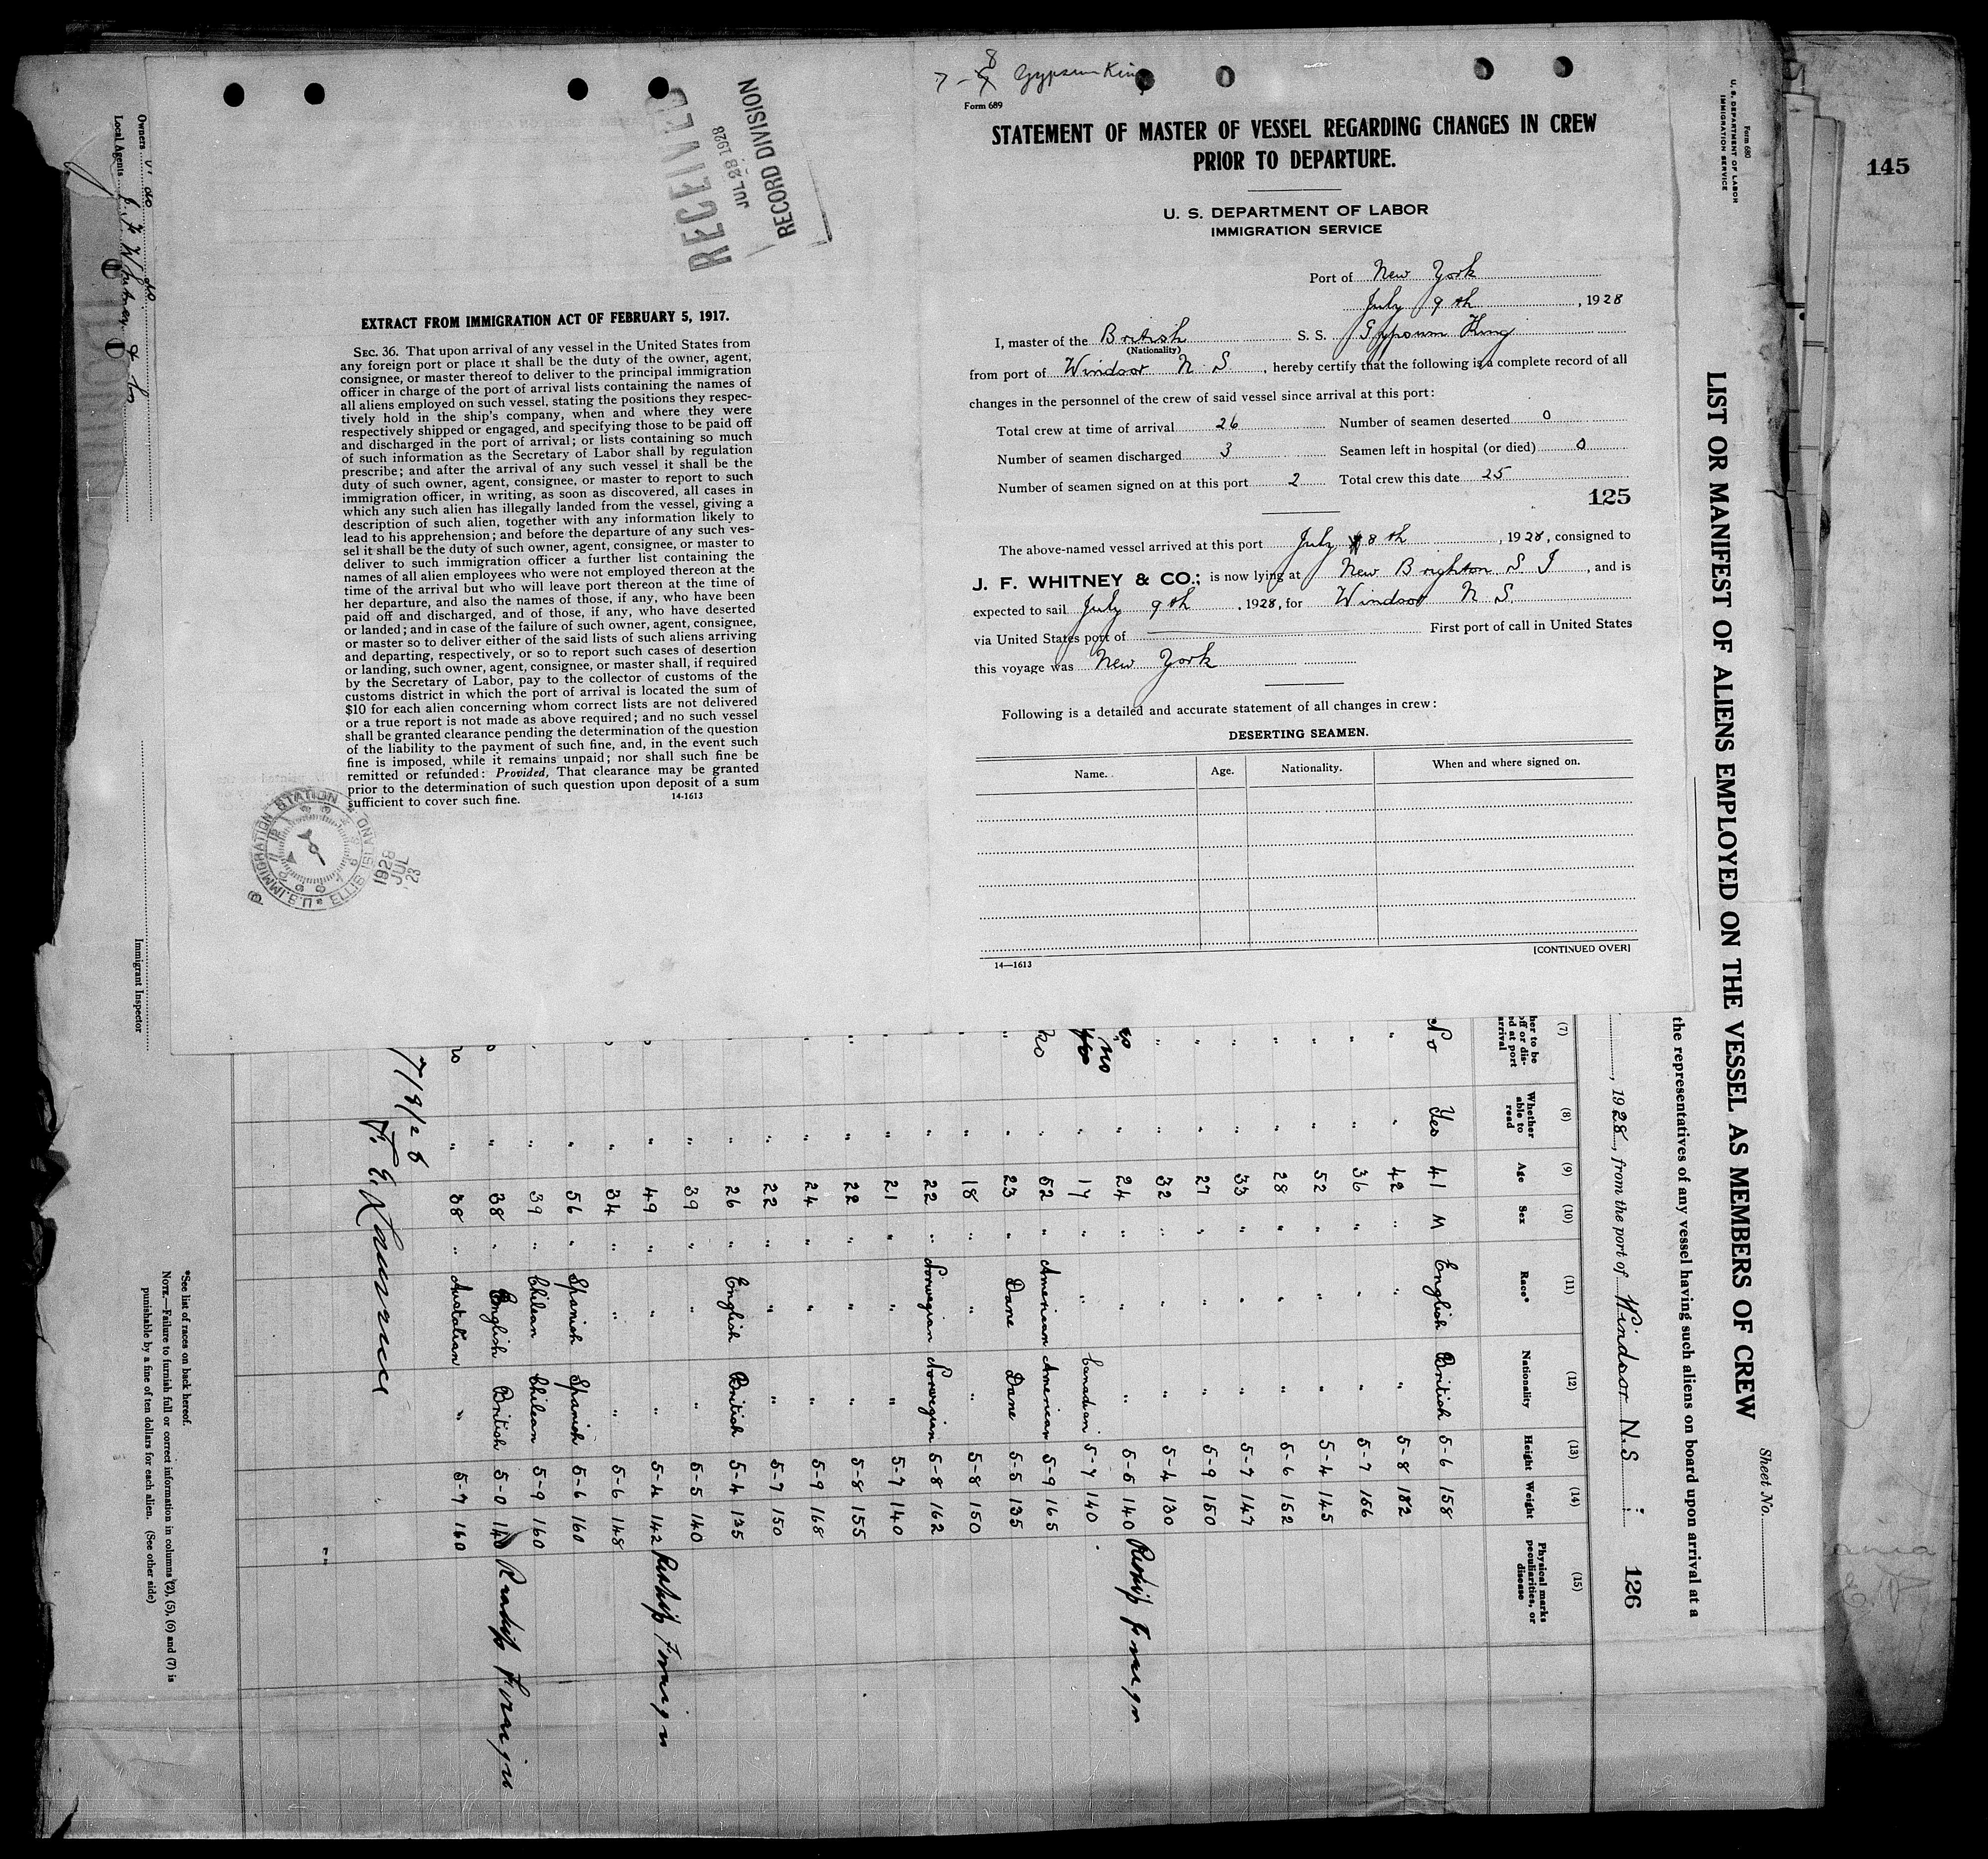 7-8 Gypsum King
Form 689
STATEMENT OF MASTER OF VESSEL REGARDING CHANGES IN CREW
PRIOR TO DEPARTURE.
U. S. DEPARTMENT OF LABOR
IMMIGRATION SERVICE
Port of New York
July 9th, 1928
I, master of the British S. S. Gypsum King
(Nationality)
from port of Windsor N. S, hereby certify that the following is a complete record of all
changes in the personnel of the crew of said vessel since arrival at this port:
Total crew at time of arrival 26 Number of seamen deserted 0
Number of seamen discharged 3 Seamen left in hospital (or died) 0
Number of seamen signed on at this port 2 Total crew this date 25
125
The above-named vessel arrived at this port July 8th, 1928, consigned to
J. F. WHITNEY & CO.; is now lying at New Brighton S I, and is
expected to sail July 9th, 1928, for Windsor N S.
via United States port of First port of call in United States
this voyage was New York
Following is a detailed and accurate statement of all changes in crew:
DESERTING SEAMEN.
Name. Age. Nationality. When and where signed on.
[CONTINUED OVER]
14—1613
RECEIVED
JUL 28 1928
RECORD DIVISION
EXTRACT FROM IMMIGRATION ACT OF FEBRUARY 5, 1917.
SEC. 36. That upon arrival of any vessel in the United States from
any foreign port or place it shall be the duty of the owner, agent,
consignee, or master thereof to deliver to the principal immigration
officer in charge of the port of arrival lists containing the names of
all aliens employed on such vessel, stating the positions they respec-
tively hold in the ship's company, when and where they were
respectively shipped or engaged, and specifying those to be paid off
and discharged in the port of arrival; or lists containing so much
of such information as the Secretary of Labor shall by regulation
prescribe; and after the arrival of any such vessel it shall be the
duty of such owner, agent, consignee, or master to report to such
immigration officer, in writing, as soon as discovered, all cases in
which any such alien has illegally landed from the vessel, giving a
description of such alien, together with any information likely to
lead to his apprehension; and before the departure of any such ves-
sel it shall be the duty of such owner, agent, consignee, or master to
deliver to such immigration officer a further list containing the
names of all alien employees who were not employed thereon at the
time of the arrival but who will leave port thereon at the time of
her departure, and also the names of those, if any, who have been
paid off and discharged, and of those, if any, who have deserted
or landed; and in case of the failure of such owner, agent, consignee,
or master so to deliver either of the said lists of such aliens arriving
and departing, respectively, or so to report such cases of desertion
or landing, such owner, agent, consignee, or master shall, if required
by the Secretary of Labor, pay to the collector of customs of the
customs district in which the port of arrival is located the sum of
$10 for each alien concerning whom correct lists are not delivered
or a true report is not made as above required; and no such vessel
shall be granted clearance pending the determination of the question
of the liability to the payment of such fine, and, in the event such
fine is imposed, while it remains unpaid; nor shall such fine be
remitted or refunded: Provided, That clearance may be granted
prior to the determination of such question upon deposit of a sum
sufficient to cover such fine.
14-1613
U.S. IMMIGRATION STATION ELLIS ISLAND
1928
JUL
23
145
Form 680
U. S. DEPARTMENT OF LABOR
IMMIGRATION SERVICE
Sheet No.
LIST OR MANIFEST OF ALIENS EMPLOYED ON THE VESSEL AS MEMBERS OF CREW
the representatives of any vessel having such aliens on board upon arrival at a
, 1928, from the port of Windsor N.S. 126
(7) (8) (9) (10) (11) (12) (13) (14) (15)
her to be off or dis- ed at port arrival
Whether able to read
Age
Sex
Race*
Nationality
Height
Weight
Physical marks peculiarities, or disease
No Yes 41 M English British 5-6 158
" " 42 " " " 5-8 182
" " 36 " " " 5-7 156
" " 52 " " " 5-4 145
" " 28 " " " 5-6 152
" " 33 " " " 5-7 147
" " 27 " " " 5-9 150
" " 32 " " " 5-4 130
" 24 " " " 5-6 140 Reship Foreign
no " 17 " " Canadian 5-7 140
no " 52 " American American 5-9 165
" " 23 " Dane Dane 5-5 135
" " 18 " " " 5-8 150
" " 22 " Norwegian Norwegian 5-8 162
" " 21 " " " 5-7 140
" " 22 " " " 5-8 155
" " 24 " " " 5-9 168
" " 22 " " " 5-7 150
" " 26 " English British 5-4 135
" " 39 " " " 5-5 140
" " 49 " " " 5-4 142 Reship Foreign
" " 34 " " " 5-6 148
" " 56 " Spanish Spanish 5-6 160
" " 39 " Chilean Chilean 5-9 160
" " 38 " English British 5-0 140 Reship Foreign
" 38 " Australian " 5-7 160
7/8/28
*See list of races on back hereof.
NOTE.—Failure to furnish full or correct information in columns (2), (5), (6) and (7) is
punishable by a fine of ten dollars for each alien. (See other side)
Owners
Local Agents J. F. Whitney & Co
Immigrant Inspector